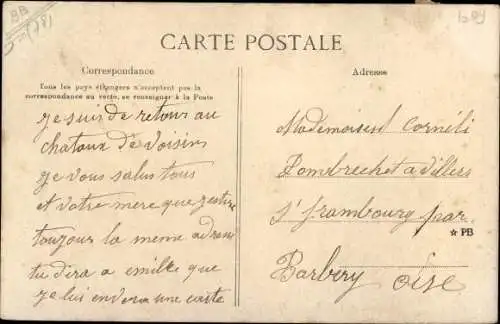 CARTE POSTALE
Correspondance
Tous les pays étrangers n'acceptent pas la
correspondance au verso, se renseigner à la Poste
je suis de retour au
chataux de voisin
je vous salus tous
et votre mere que
toujour la meme
tu dira a emile que
je lui envera une carte
Adresse
Mademoisesl Cornéli
a Villers
St frambourg par
★ PB
Barbery Oise